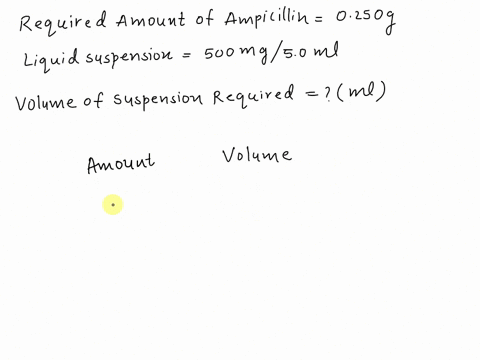 Required Amount of Ampicillin = 0.250g
Liquid suspension = 500 mg/5.0 ml
Volume of Suspension Required = ? (ml)
Amount Volume